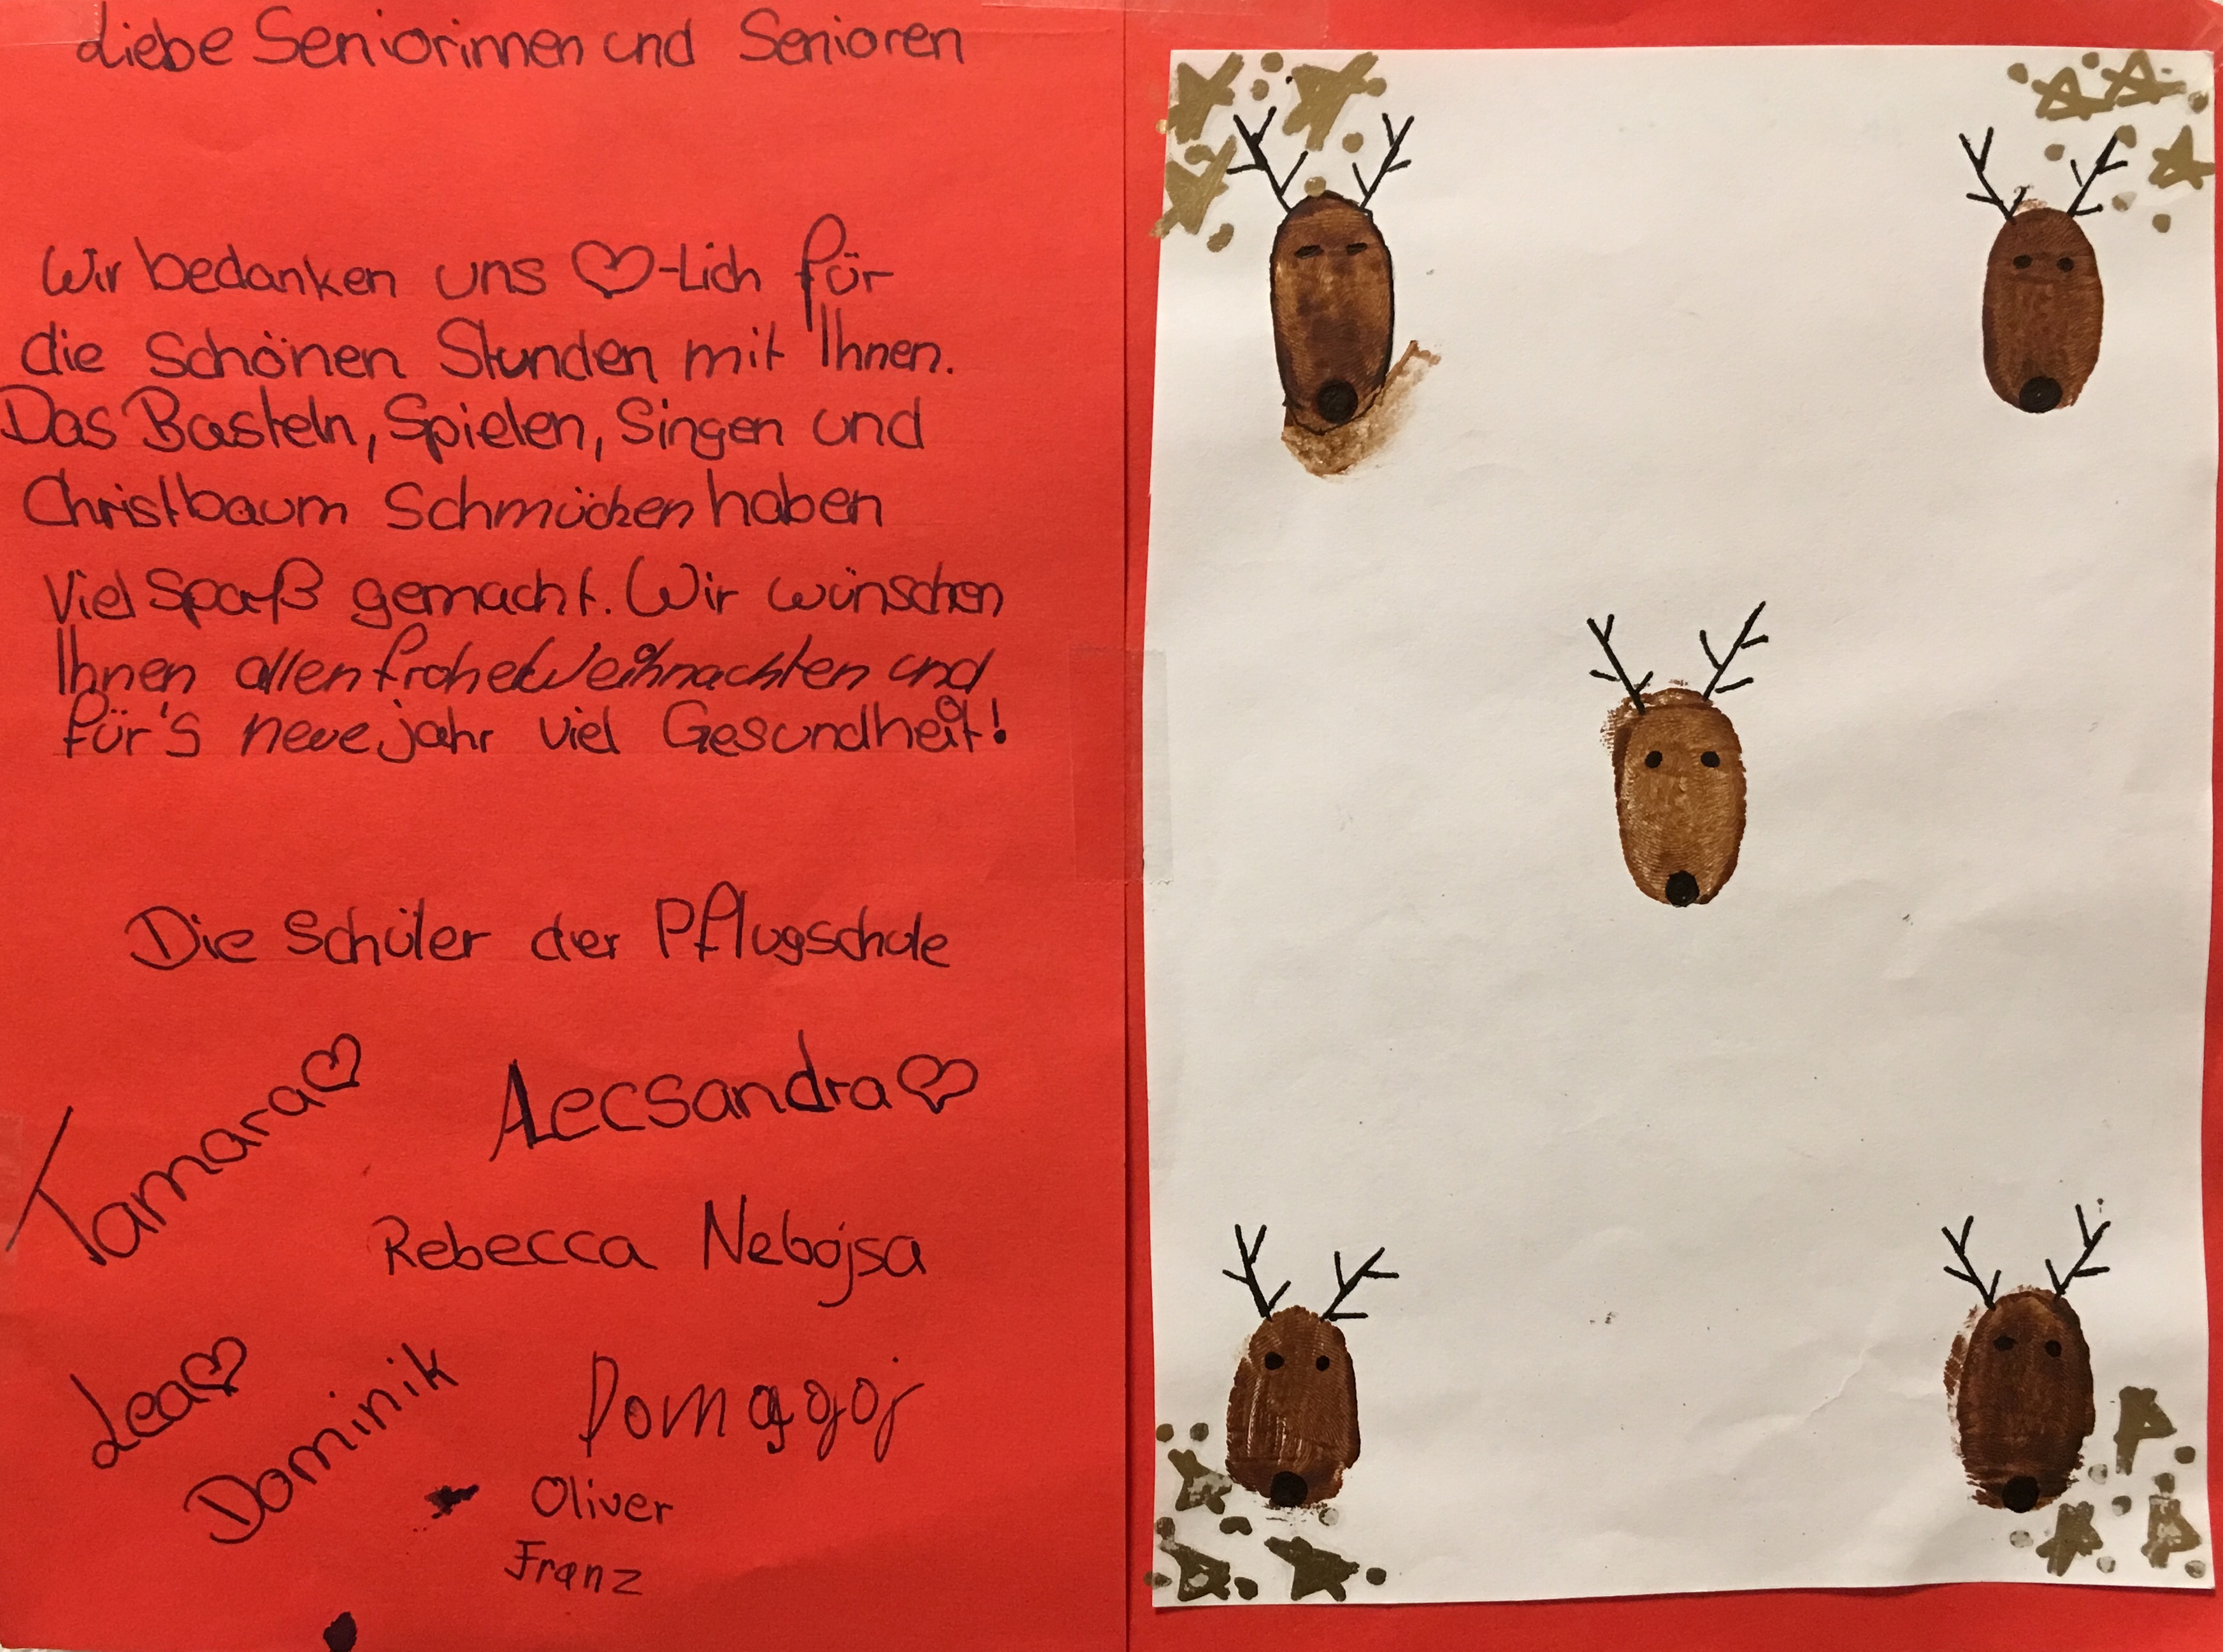 Liebe Seniorinnen und Senioren
Wir bedanken uns ♡-Lich für
die schönen Stunden mit Ihnen.
Das Basteln, Spielen, Singen und
Christbaum Schmücken haben
Viel Spaß gemacht. Wir wünschen
Ihnen allen frohe Weihnachten und
für's neue jahr viel Gesundheit!
Die Schüler der Pflugschule
Tamara♡
Alecsandra♡
Rebecca Nebojsa
Lea♡
Dominik
Domagoj
Oliver
Franz